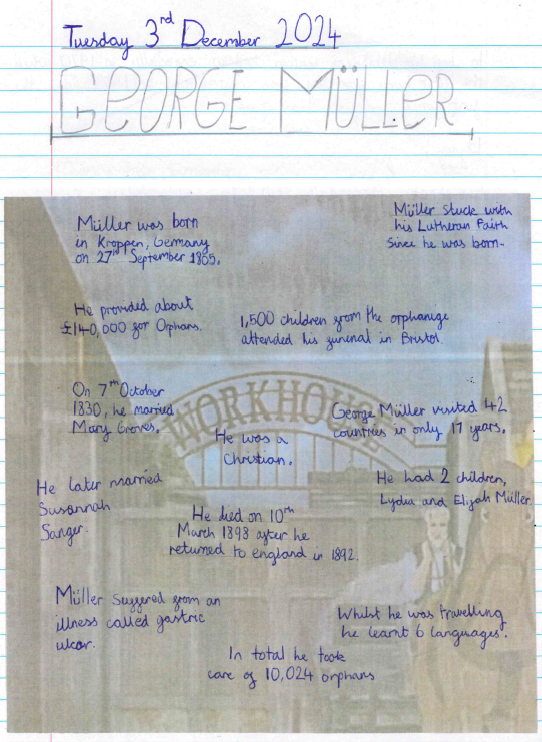 Tuesday 3rd December 2024
GEORGE MÜLLER
Müller was born
in Kroppen, Germany
on 27th September 1805.
Müller stuck with
his Lutheran Faith
since he was born.
He provided about
£140,000 for Orphans.
1,500 children from the orphanige
attended his funeral in Bristol
On 7th October
1830, he married
Mary Groves.
WORKHOUSE
George Müller visited 42
countries in only 17 years.
He was a
Christian.
He later married
Susannah
Sanger.
He had 2 children,
Lydia and Elijah Müller.
He died on 10th
March 1898 after he
returned to england in 1892.
Müller suffered from an
illness called gastric
ulcar.
Whilst he was travelling
he learnt 6 languages.
In total he took
care of 10,024 orphans